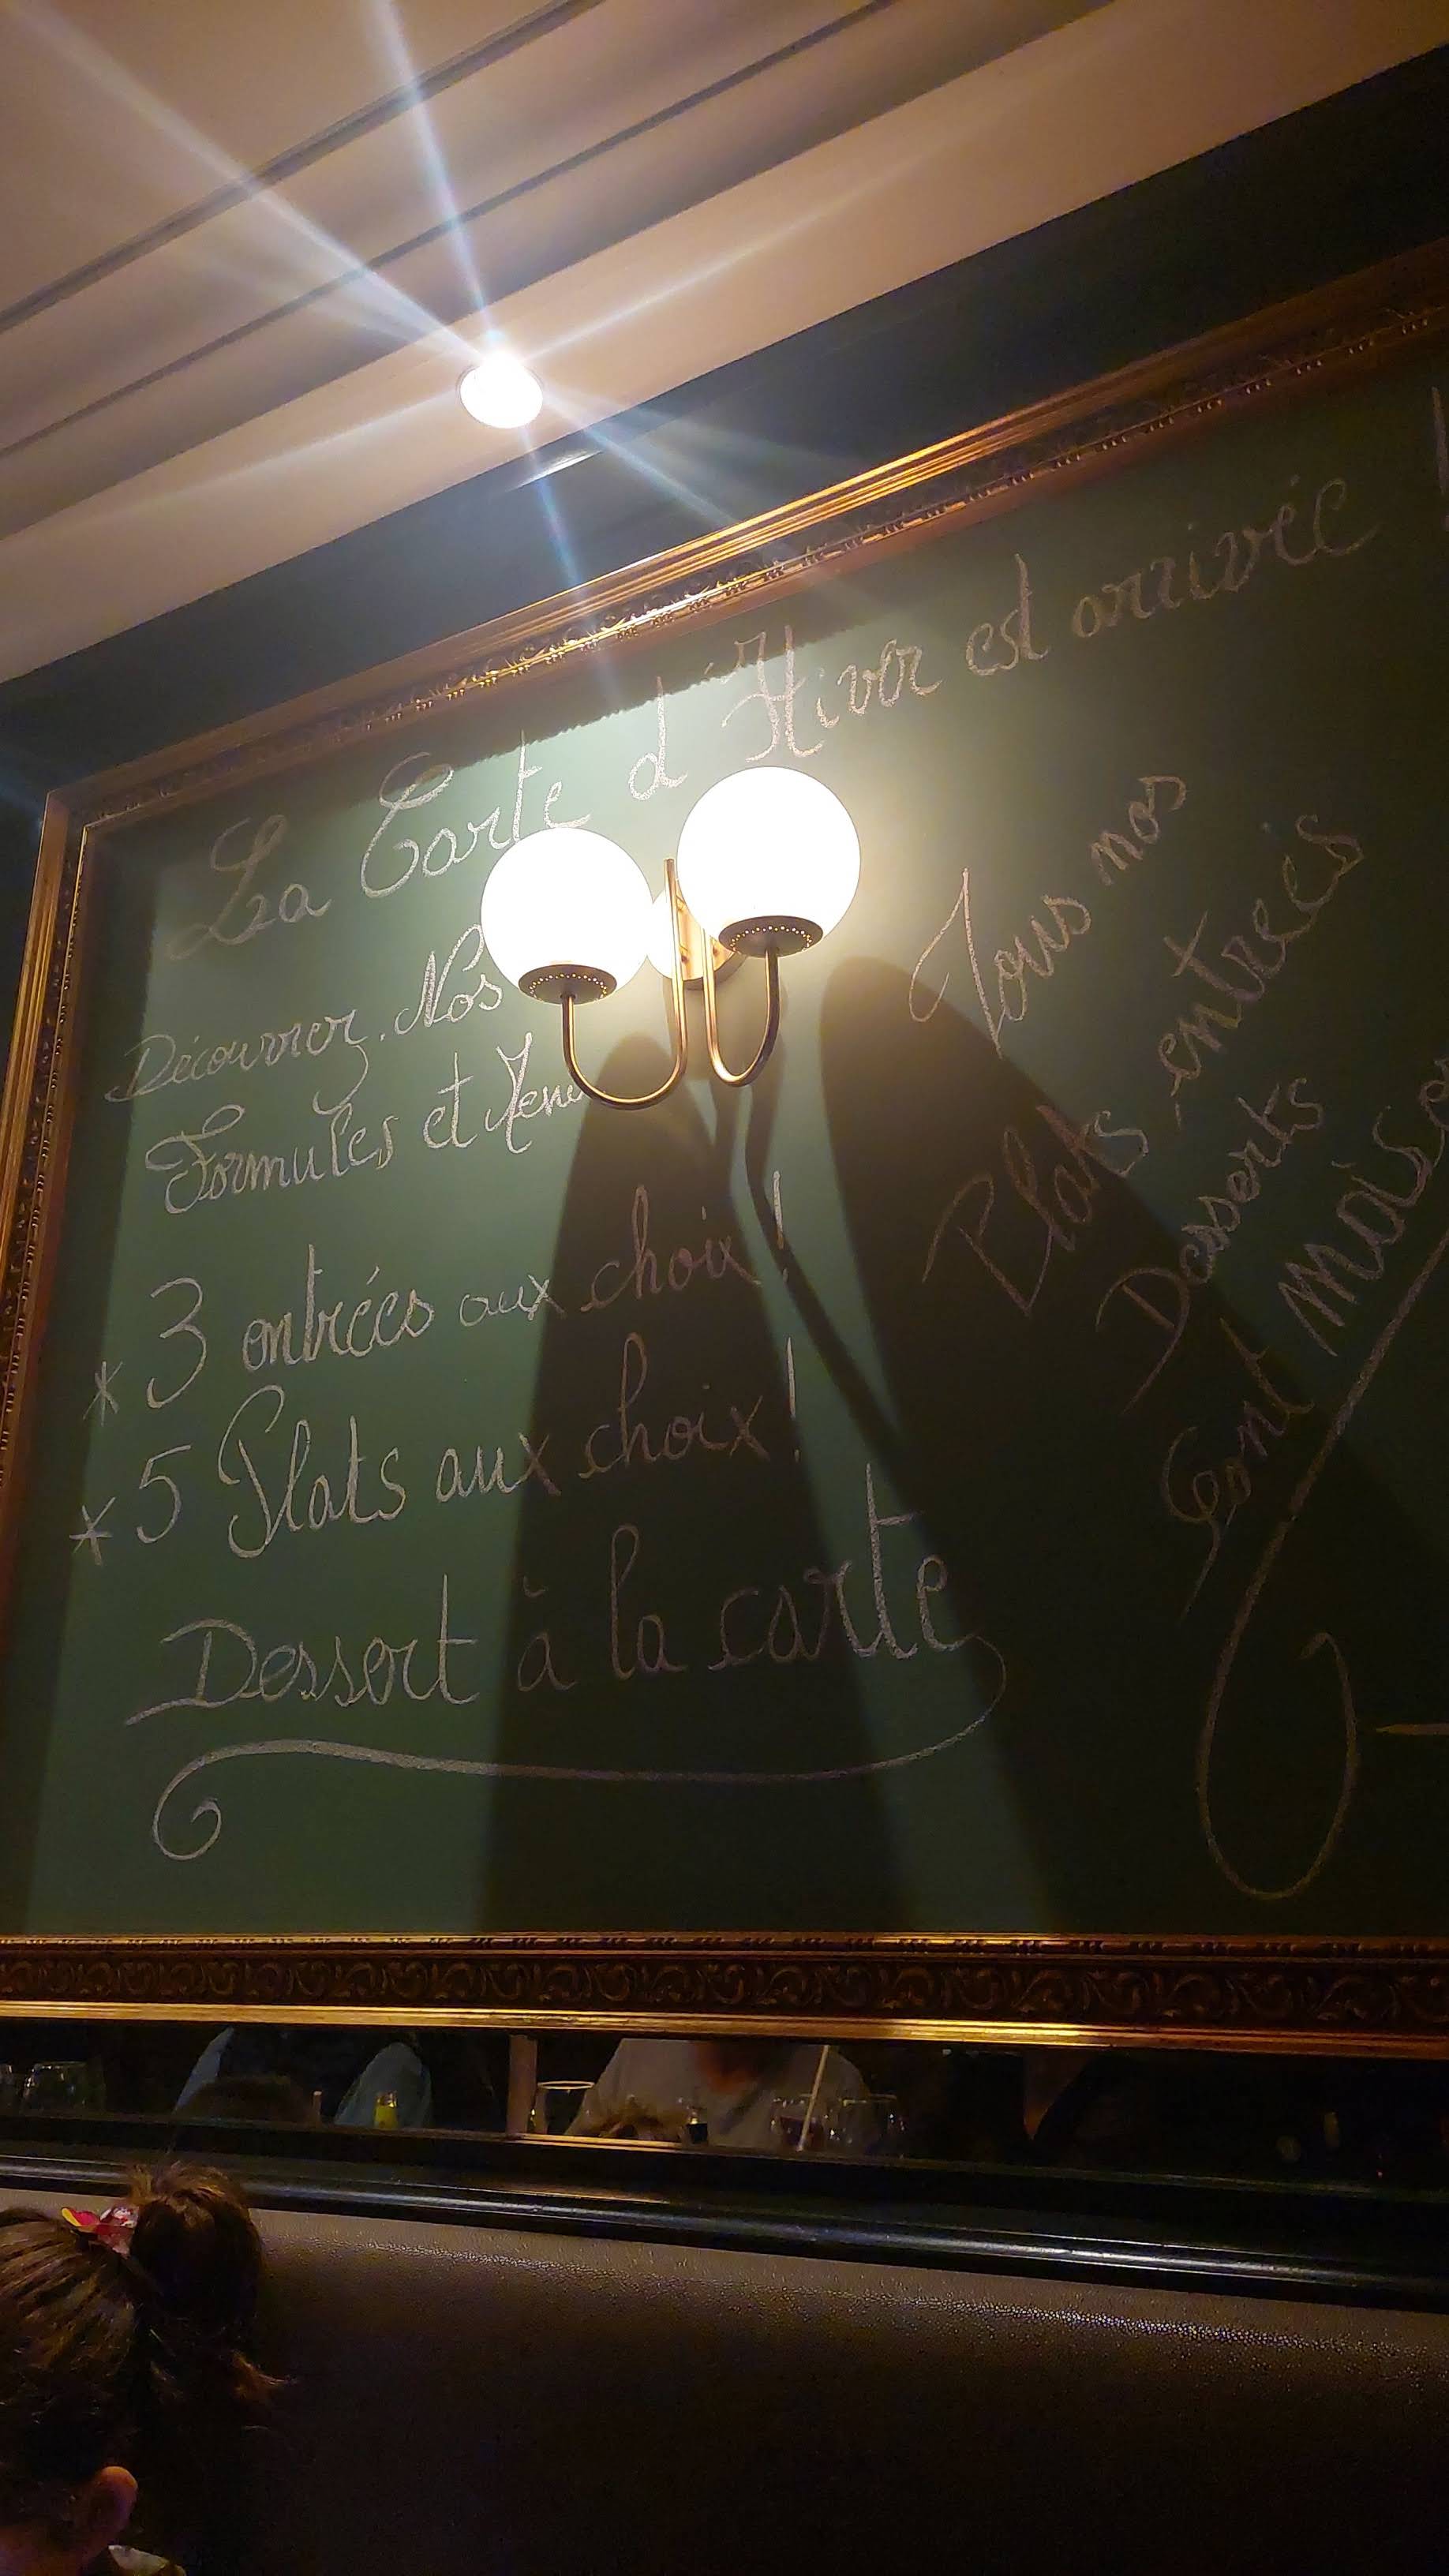 La Carte d'Hiver est arrivée
Découvrez Nos
Formules et Menu
* 3 entrées aux choix !
* 5 Plats aux choix !
Dessert à la carte
Tous nos
Plats - entrées
Desserts
Sont